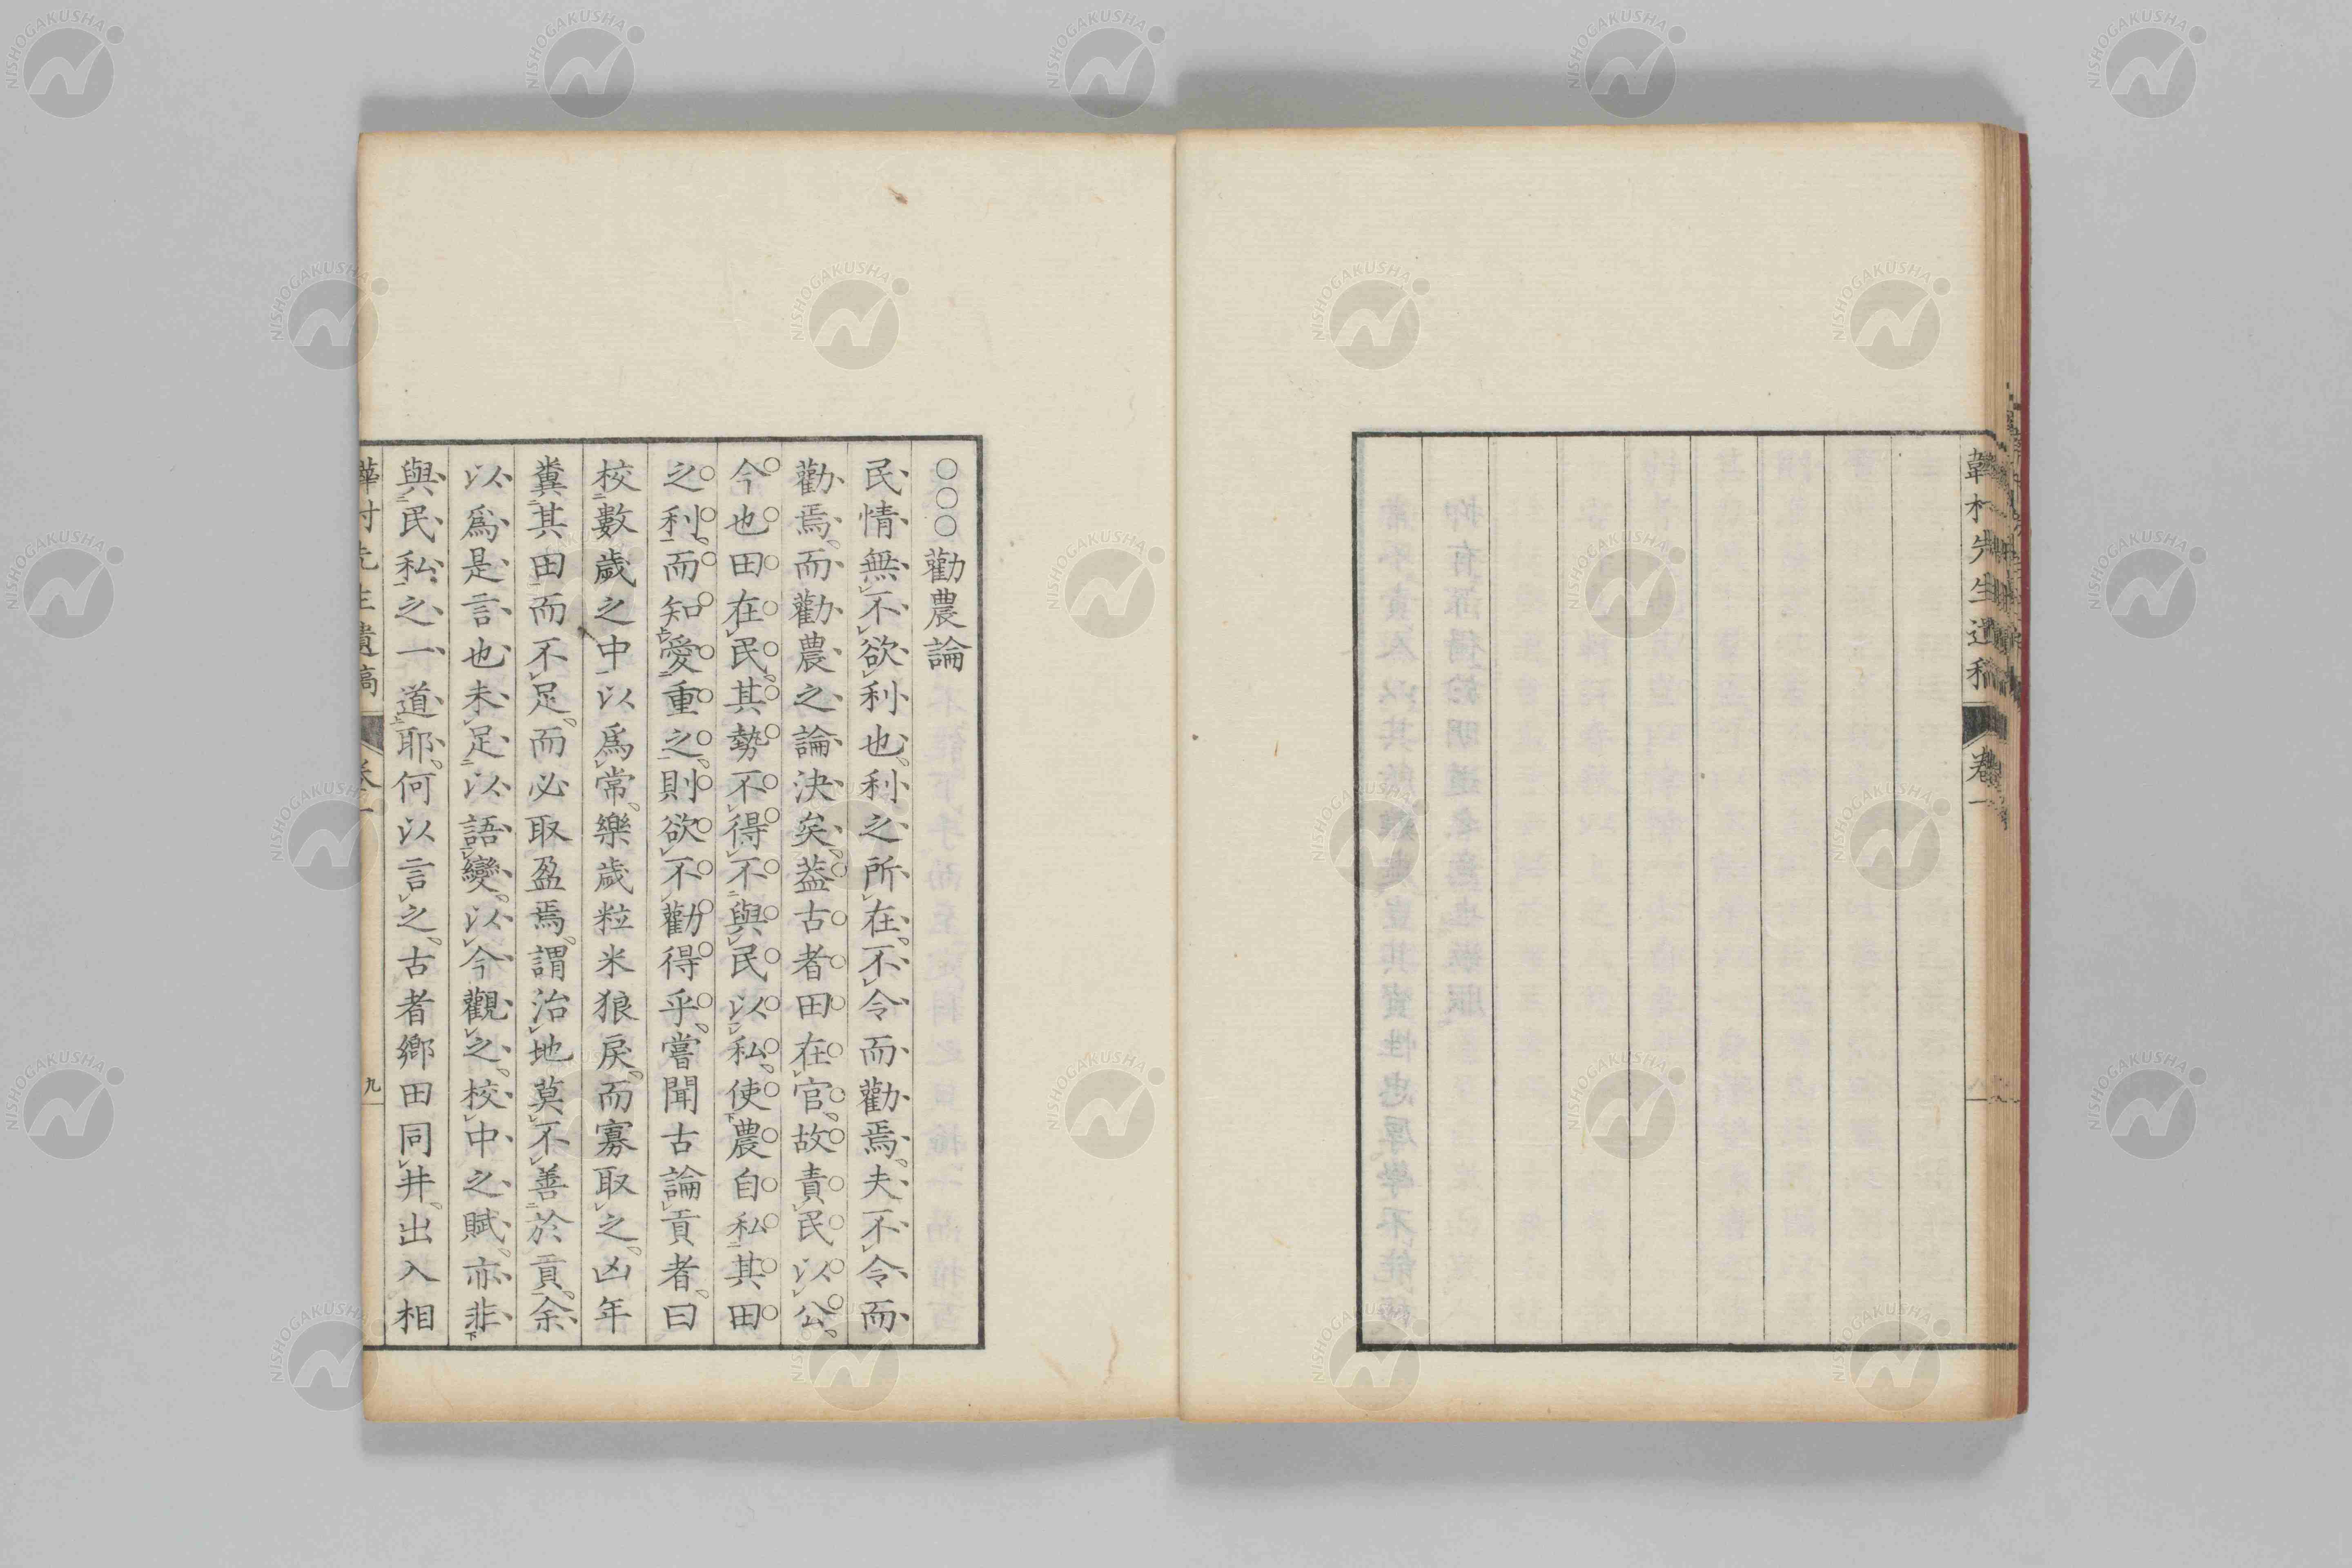 韡村先生遺稿 卷一 八
〇〇〇勸農論
民情無不欲利也利之所在不令而勸焉夫不令而
勸焉而勸農之論決矣蓋古者田在官故責民以公
今也田在民其勢不得不與民以私使農自私其田
之利而知愛重之則欲不勸得乎嘗聞古論貢者曰
校數歲之中以爲常樂歲粒米狼戾而寡取之凶年
糞其田而不足而必取盈焉謂治地莫不善於貢余
以爲是言也未足以語變以今觀之校中之賦亦非
與民私之一道耶何以言之古者鄉田同井出入相
韡村先生遺稿 卷一 九
NISHOGAKUSHA